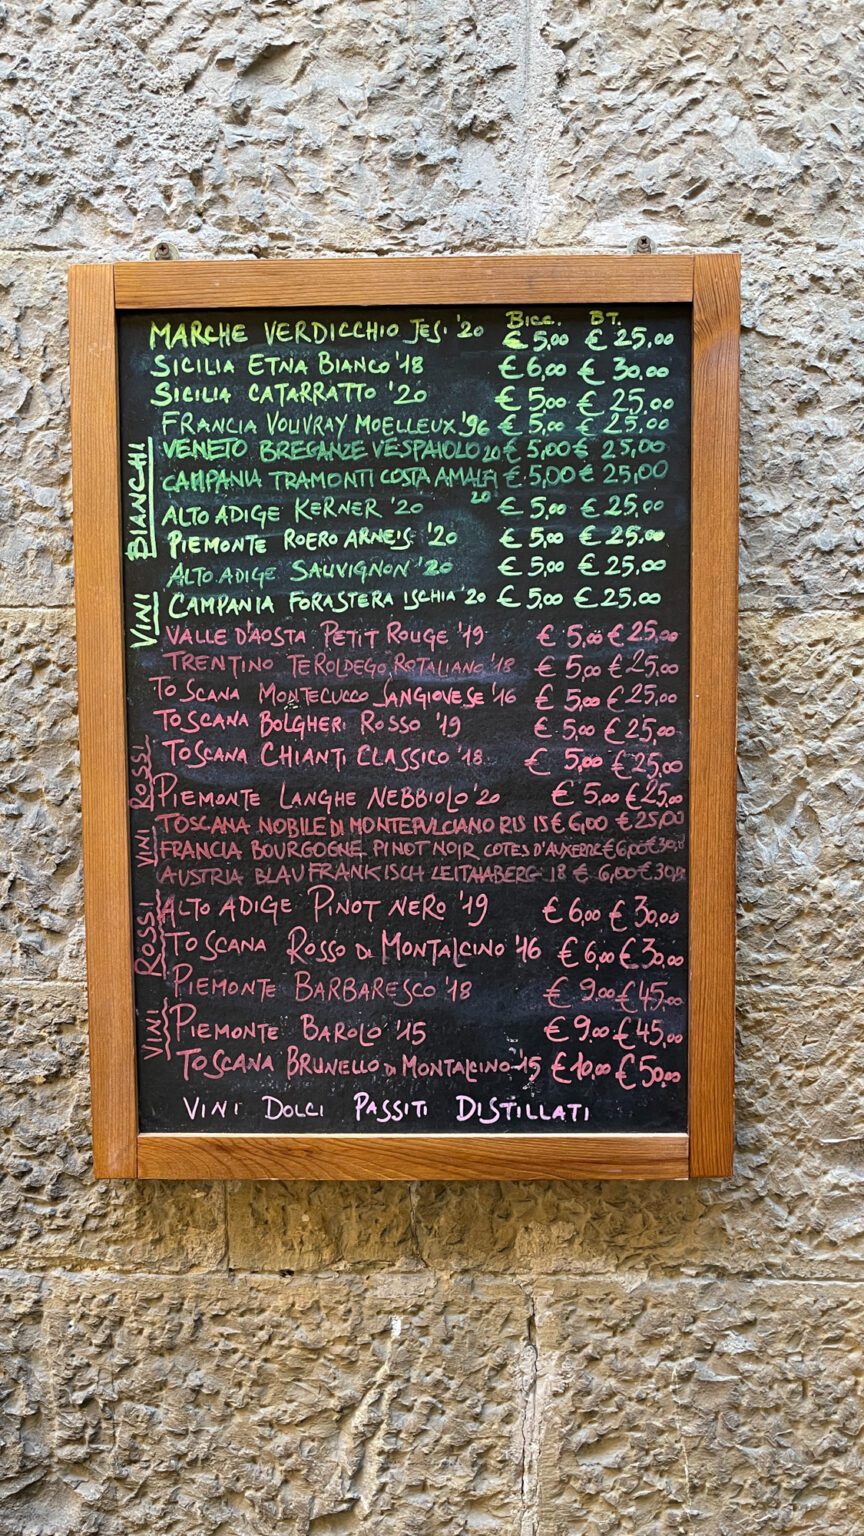 Bicc. BT.
MARCHE VERDICCHIO JESI '20 € 5,00 € 25,00
SICILIA ETNA BIANCO '18 € 6,00 € 30,00
SICILIA CATARRATTO '20 € 5,00 € 25,00
FRANCIA VOUVRAY MOELLEUX '96 € 5,00 € 25,00
VENETO BREGANZE VESPAIOLO 20 € 5,00 € 25,00
CAMPANIA TRAMONTI COSTA AMALFI 20 € 5,00 € 25,00
ALTO ADIGE KERNER '20 € 5,00 € 25,00
PIEMONTE ROERO ARNEIS '20 € 5,00 € 25,00
ALTO ADIGE SAUVIGNON '20 € 5,00 € 25,00
CAMPANIA FORASTERA ISCHIA '20 € 5,00 € 25,00
VINI BIANCHI
VALLE D'AOSTA PETIT ROUGE '19 € 5,00 € 25,00
TRENTINO TEROLDEGO ROTALIANO '18 € 5,00 € 25,00
TOSCANA MONTECUCCO SANGIOVESE '16 € 5,00 € 25,00
TOSCANA BOLGHERI ROSSO '19 € 5,00 € 25,00
TOSCANA CHIANTI CLASSICO '18 € 5,00 € 25,00
PIEMONTE LANGHE NEBBIOLO '20 € 5,00 € 25,00
TOSCANA NOBILE DI MONTEPULCIANO RIS 15 € 6,00 € 25,00
FRANCIA BOURGOGNE PINOT NOIR COTES D'AUXERRE € 6,00 € 30,0
VINI ROSSI
AUSTRIA BLAUFRANKISCH LEITHABERG 18 € 6,00 € 30,0
ALTO ADIGE PINOT NERO '19 € 6,00 € 30,00
TOSCANA ROSSO DI MONTALCINO '16 € 6,00 € 30,00
PIEMONTE BARBARESCO '18 € 9,00 € 45,00
PIEMONTE BAROLO '15 € 9,00 € 45,00
TOSCANA BRUNELLO DI MONTALCINO '15 € 10,00 € 50,00
VINI ROSSI
VINI DOLCI PASSITI DISTILLATI